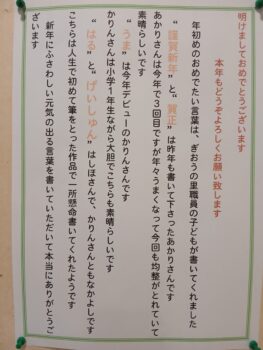 明けましておめでとうございます
本年もどうぞよろしくお願い致します
年初めのおめでたい言葉は、ぎおうの里職員の子どもが書いてくれました
“謹賀新年”と“賀正”は昨年も書いて下さったあかりさんです
あかりさんは今年で3回目ですが年々うまくなって今回も均整がとれていて
素晴らしいです
“うま”は今年デビューのかりんさんです
かりんさんは小学1年生ながら大胆でこちらも素晴らしいです
“はる”と“げいしゅん”はしほさんで、かりんさんともなかよしです
こちらは人生で初めて筆をとった作品で一所懸命書いてくれたようです
新年にふさわしい元気の出る言葉を書いていただいて本当にありがとうご
ざいます